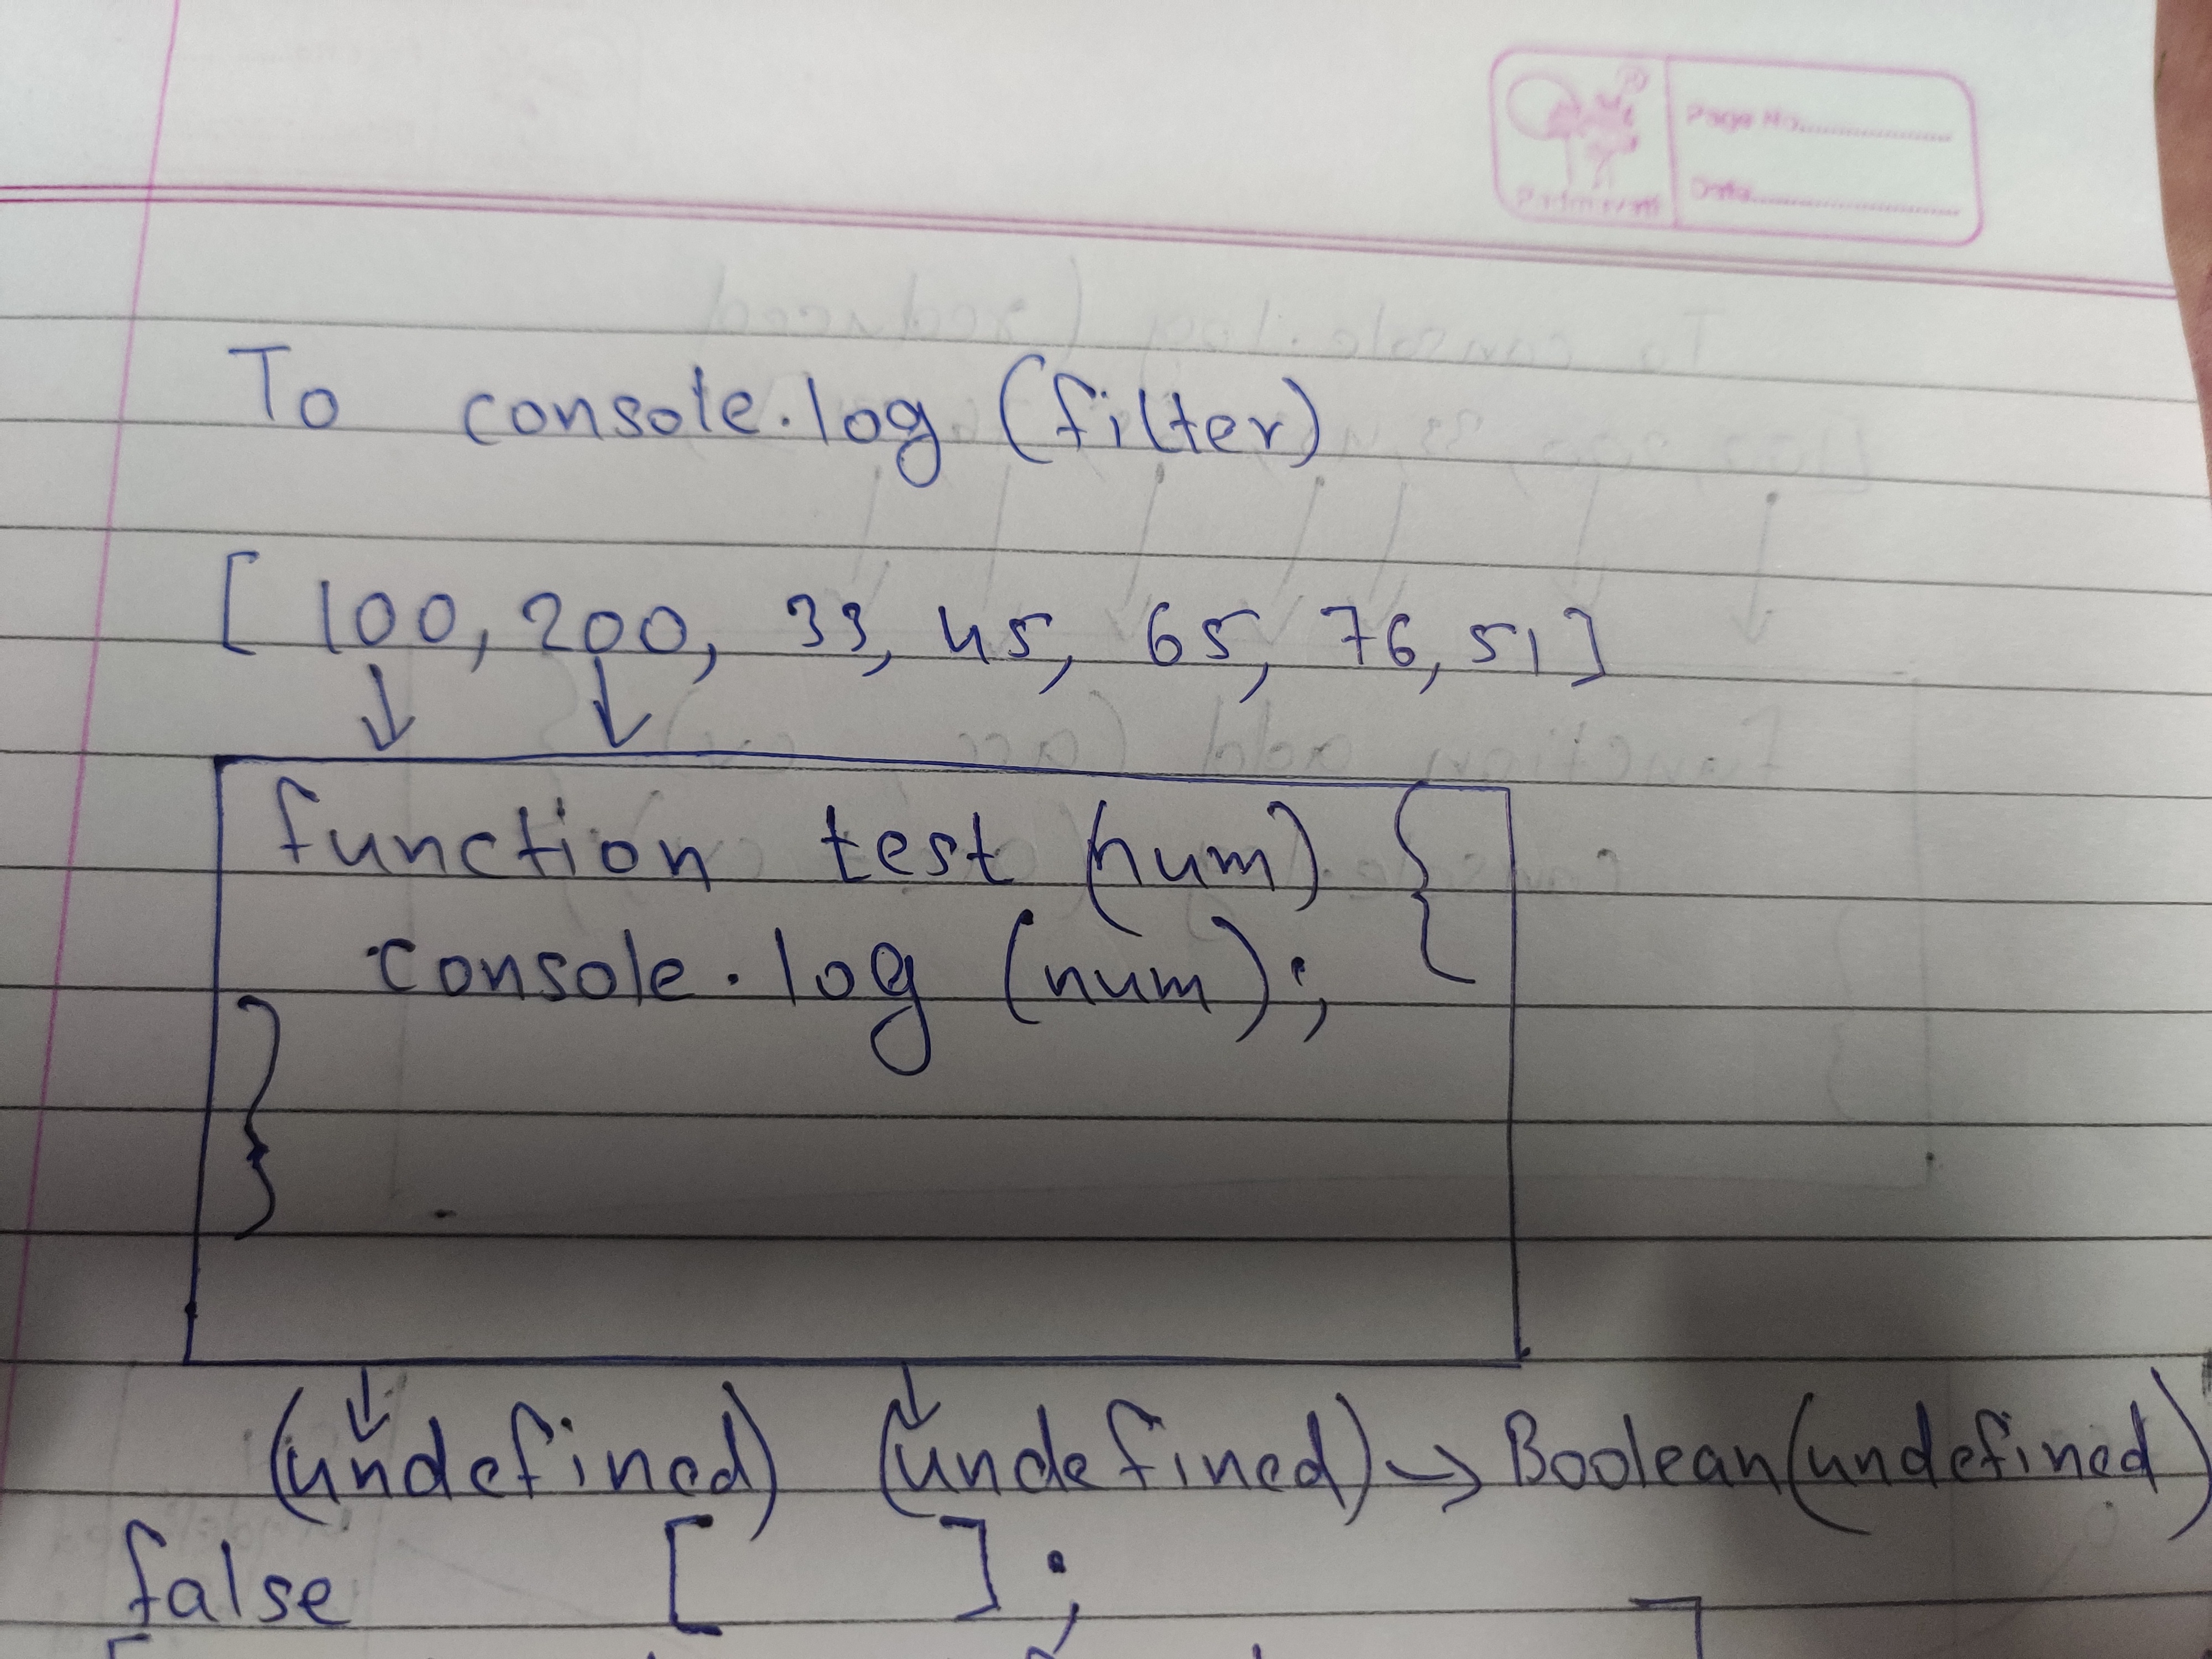 Page No.
Date
To console.log (filter)
[ 100, 200, 33, 45, 65, 76, 51 ]
function test (num) {
console.log (num);
}
(undefined) (undefined) → Boolean(undefined)
false [ ];